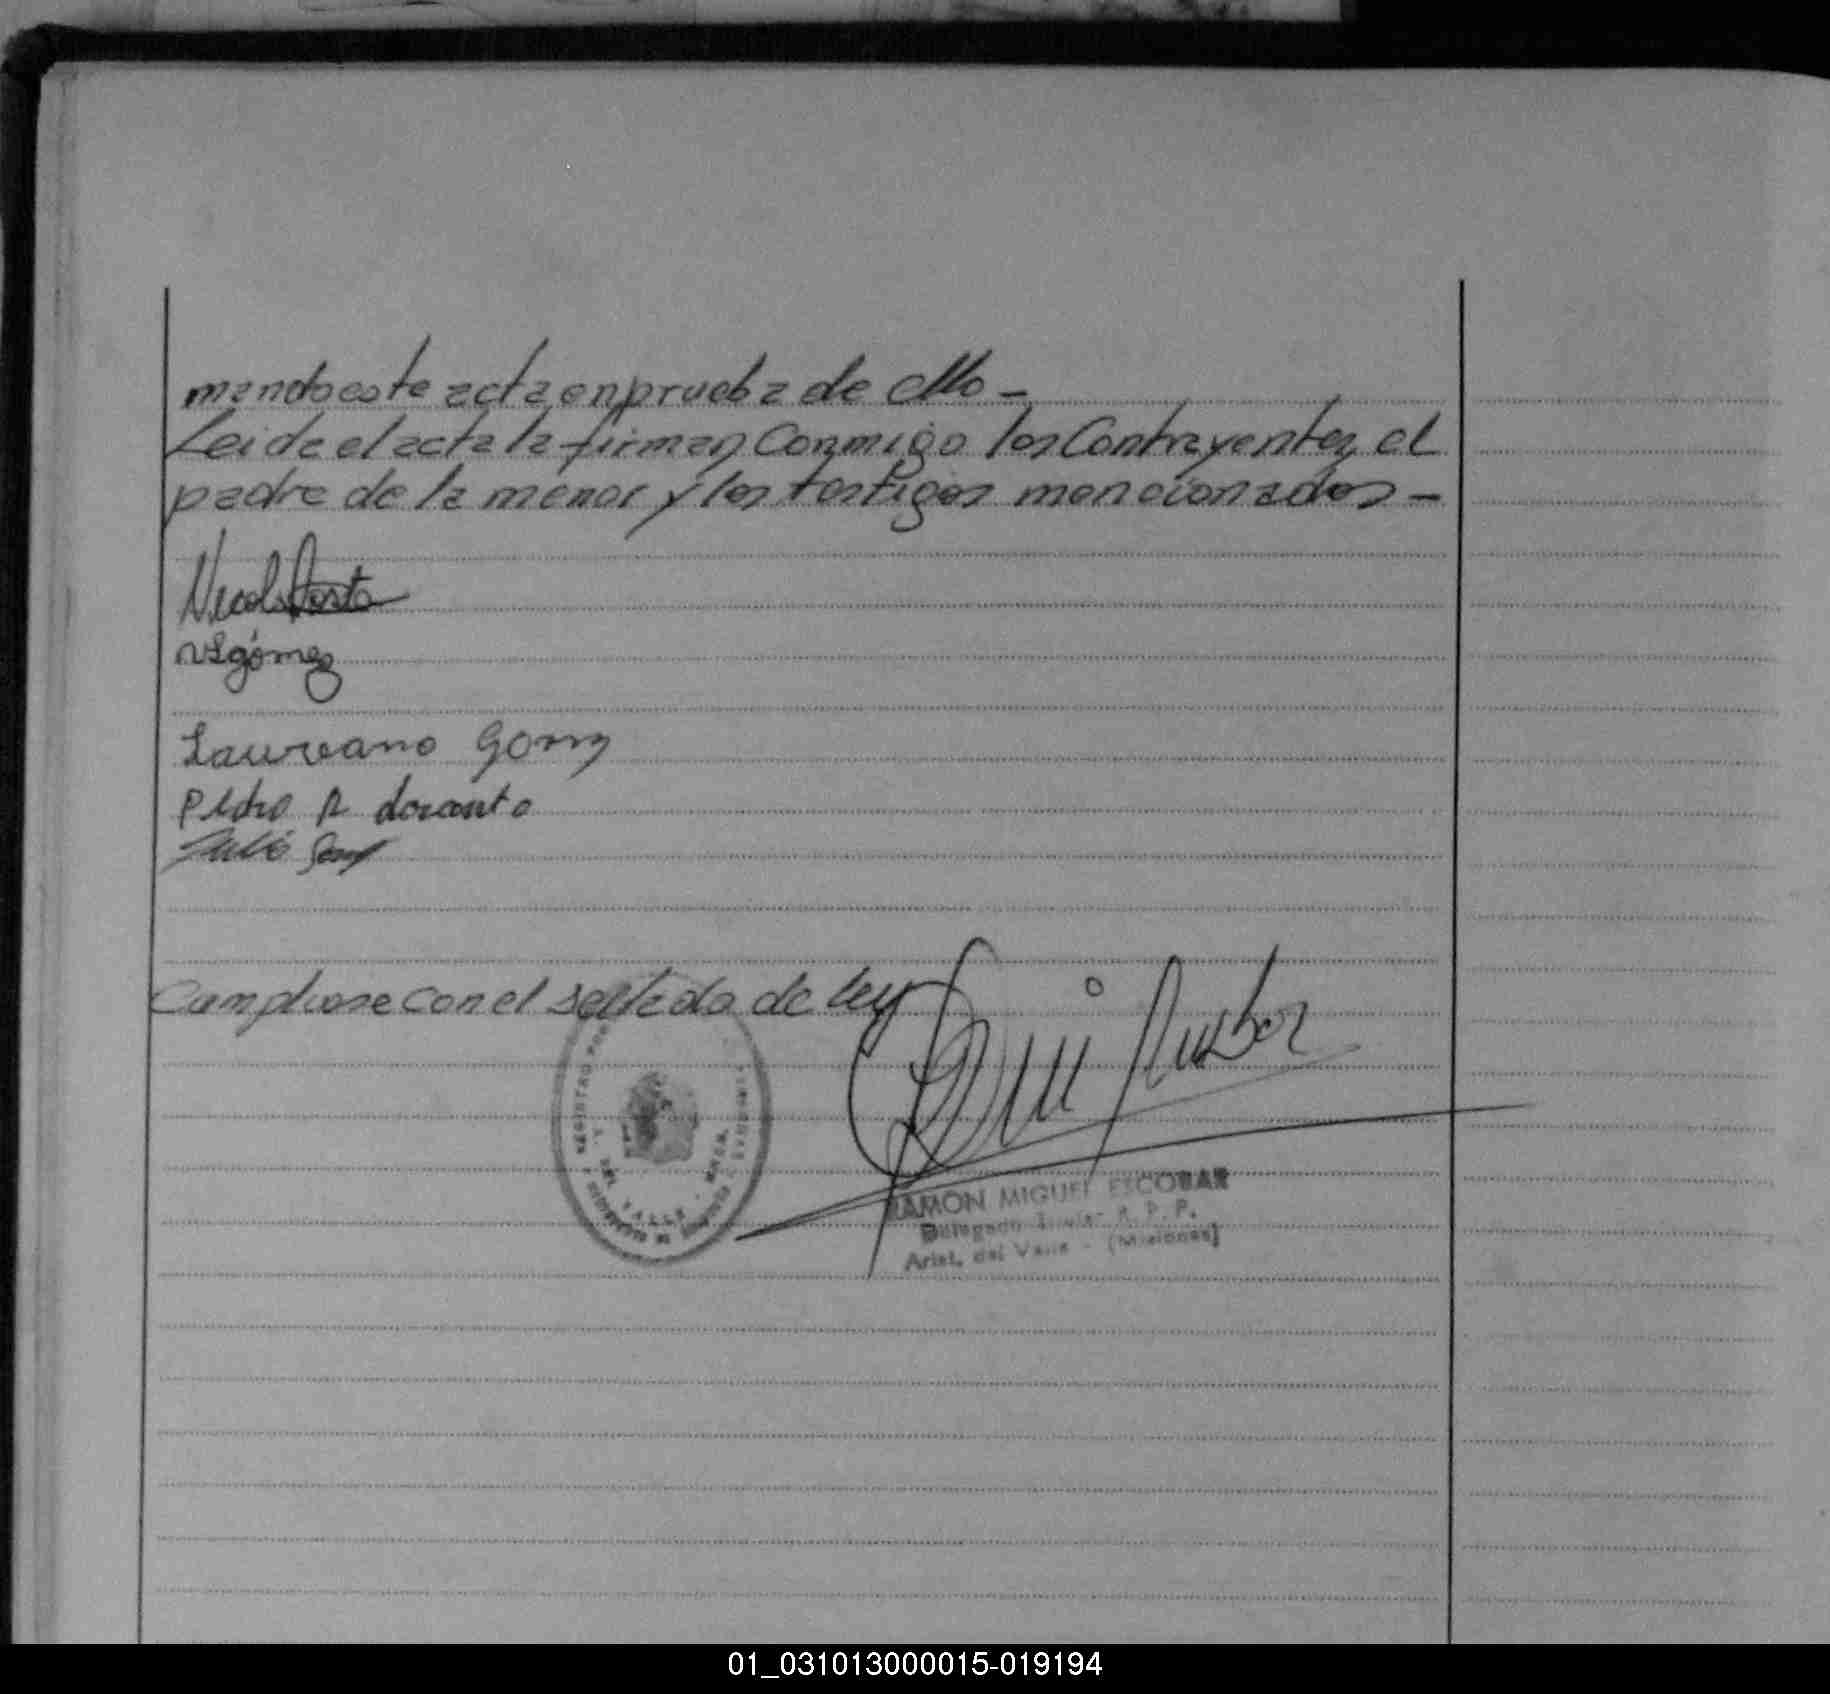 mando este acta en prueba de ello -
Leida el acta la firman conmigo los Contrayentes, el
padre de la menor y los testigos mencionados -
Nicol Acosta
gómez
Laureano Gomz
Pedro A doranto
Julio
Cumpliose con el sellado de ley
REGISTRO
DEL VALLE
RAMON MIGUEL ESCOBAR
Delegado Titular R. P. P.
Arist. del Valle - (Misiones)
01_031013000015-019194